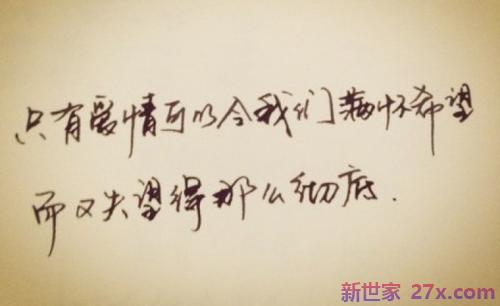 只有爱情可以令我们满怀希望
而又失望得那么彻底.
新世家 27x.com